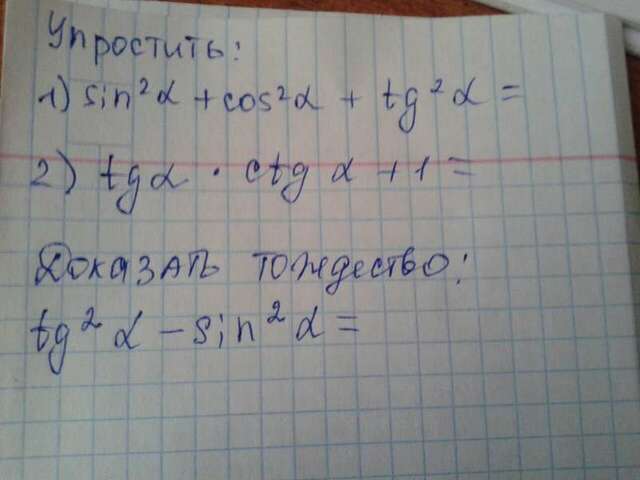 Упростить:
1) sin²α + cos²α + tg²α =
2) tgα · ctgα + 1 =
Доказать тождество:
tg²α - sin²α =